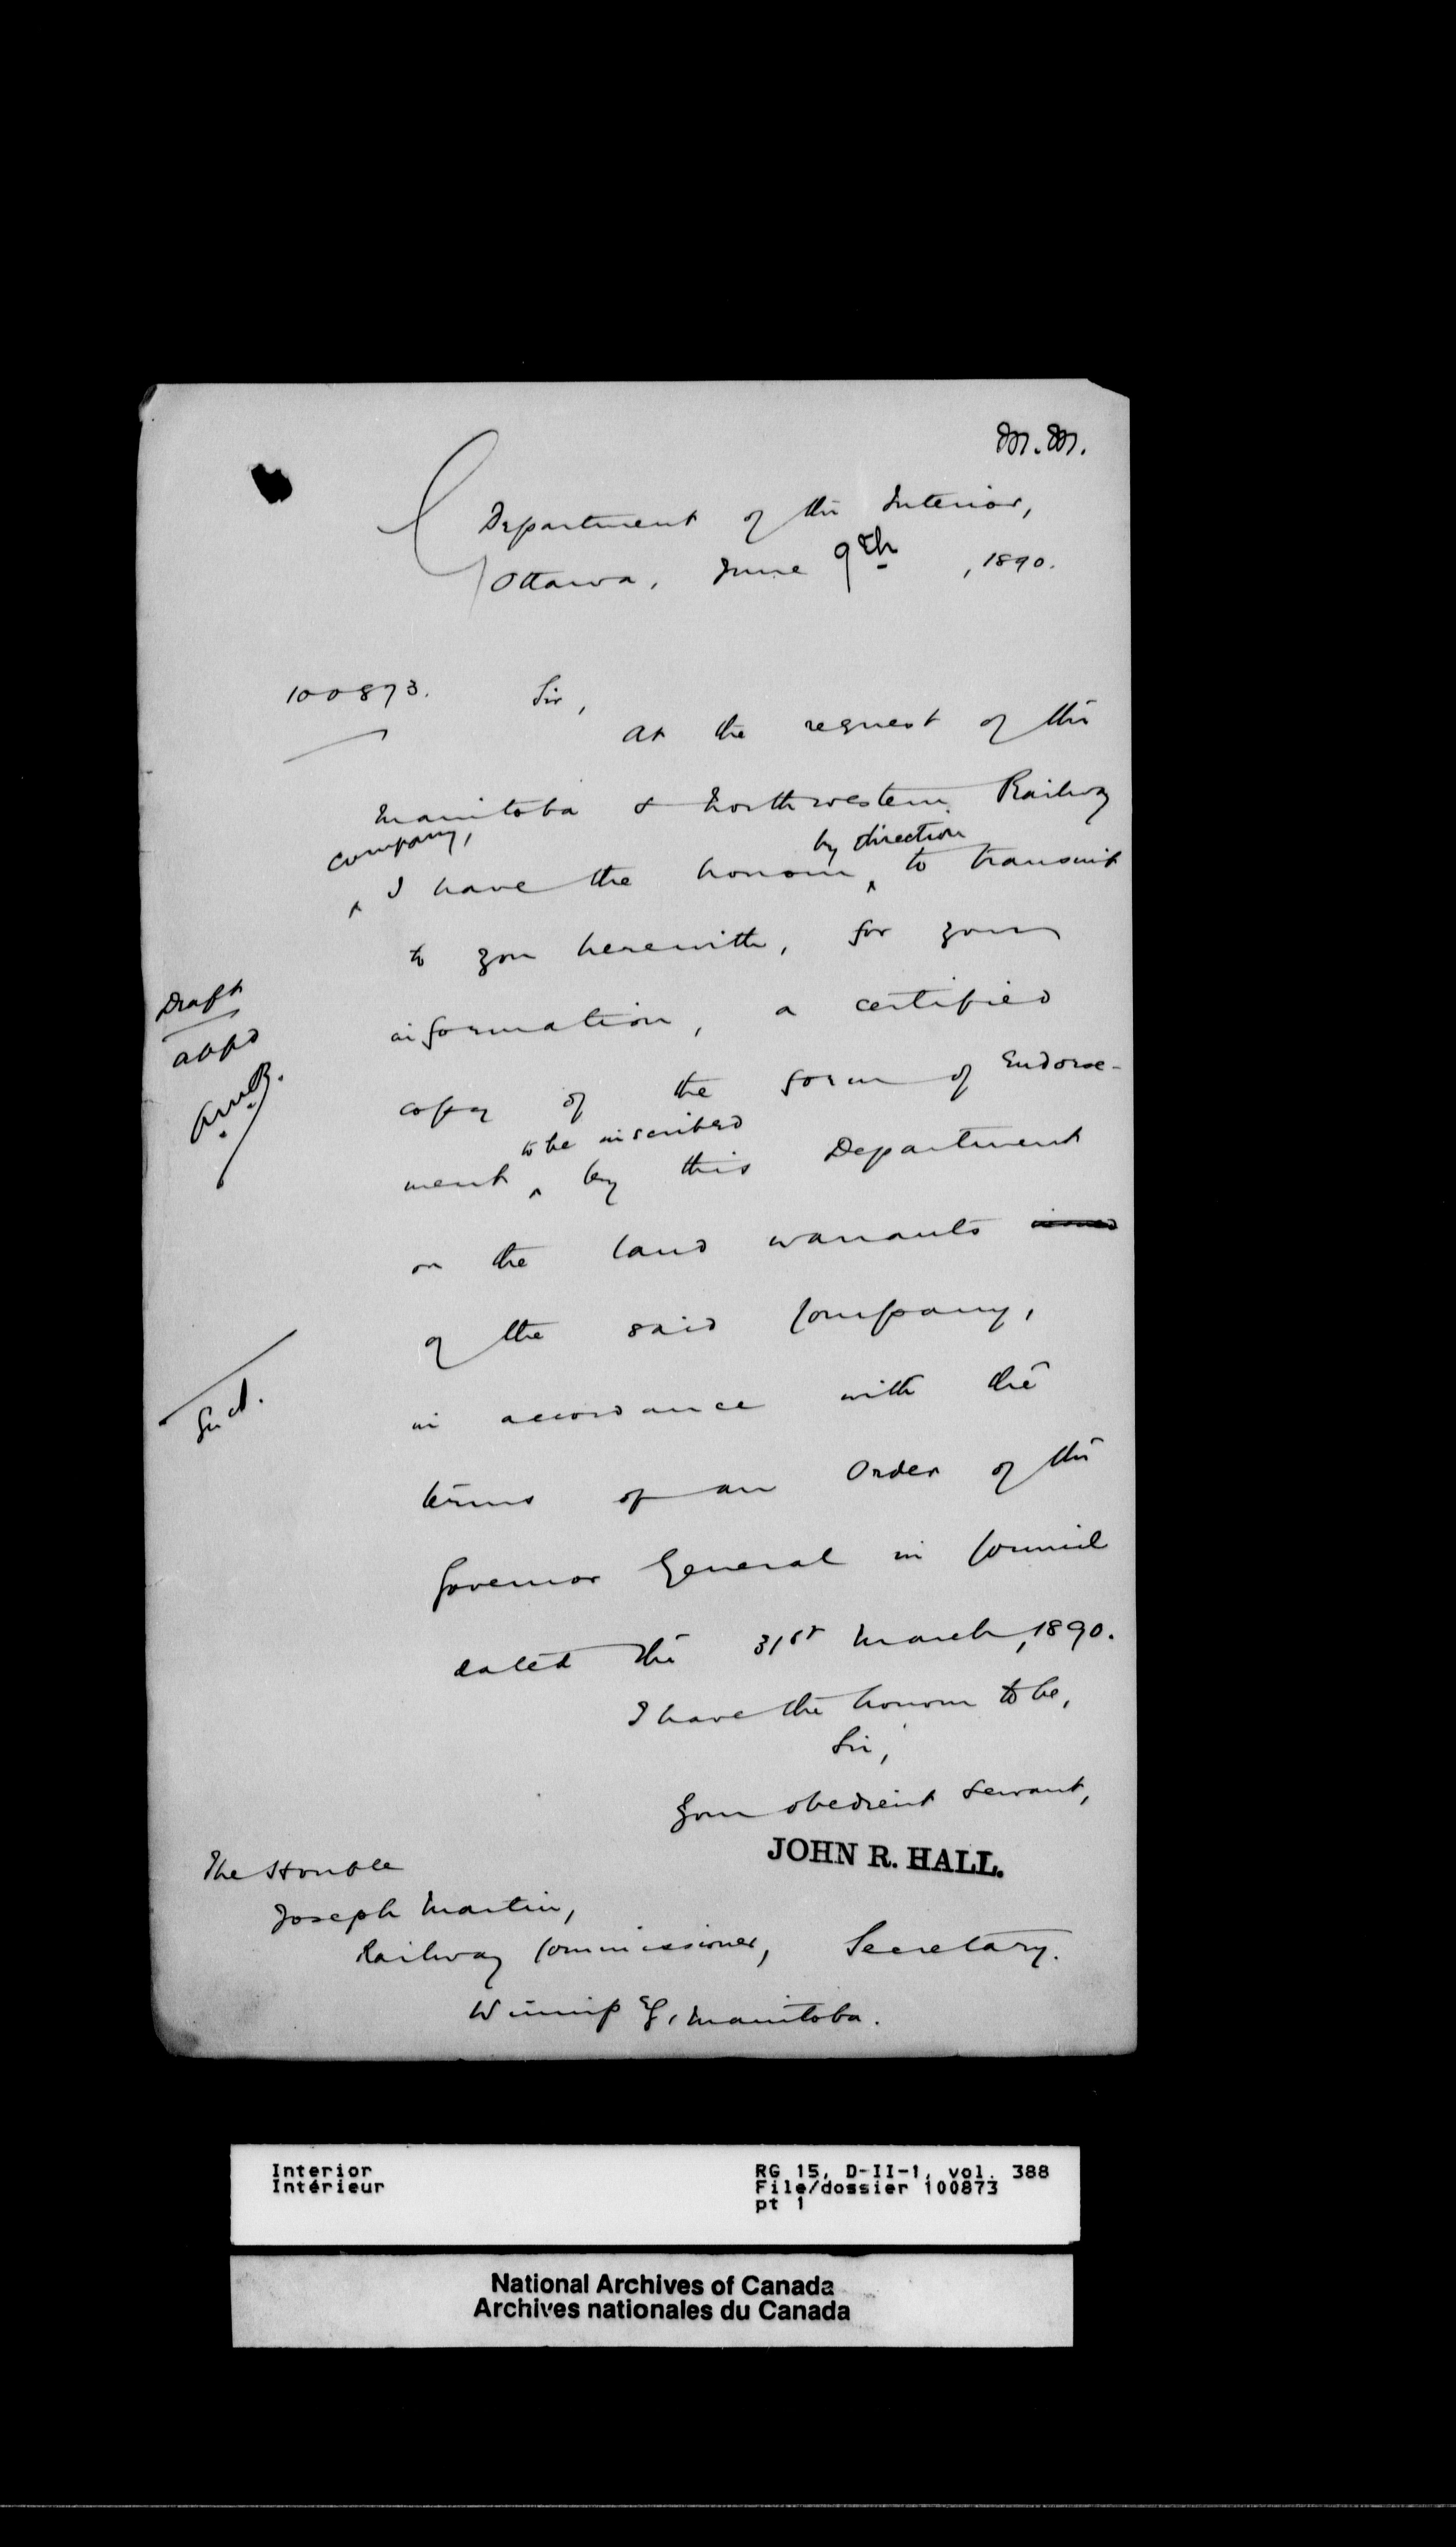 M.M.
Department of the Interior,
Ottawa, June 9th, 1890.
100873.
Sir,
At the request of the
Manitoba & Northwestern Railway
Company,
by direction
I have the honour to transmit
to you herewith, for your
information, a certified
Draft
appd
copy of the form of Endorse-
to be inscribed
ment by this Department
on the land warrants
of the said Company,
in accordance with the
terms of an Order of the
Governor General in Council
dated the 31st March, 1890.
I have the honour to be,
Sir,
Your obedient servant,
JOHN R. HALL.
Secretary.
The Honble
Joseph Martin,
Railway Commissioner,
Winnipeg, Manitoba.
Interior
Intérieur
RG 15, D-II-1, vol. 388
File/dossier 100873
pt 1
National Archives of Canada
Archives nationales du Canada